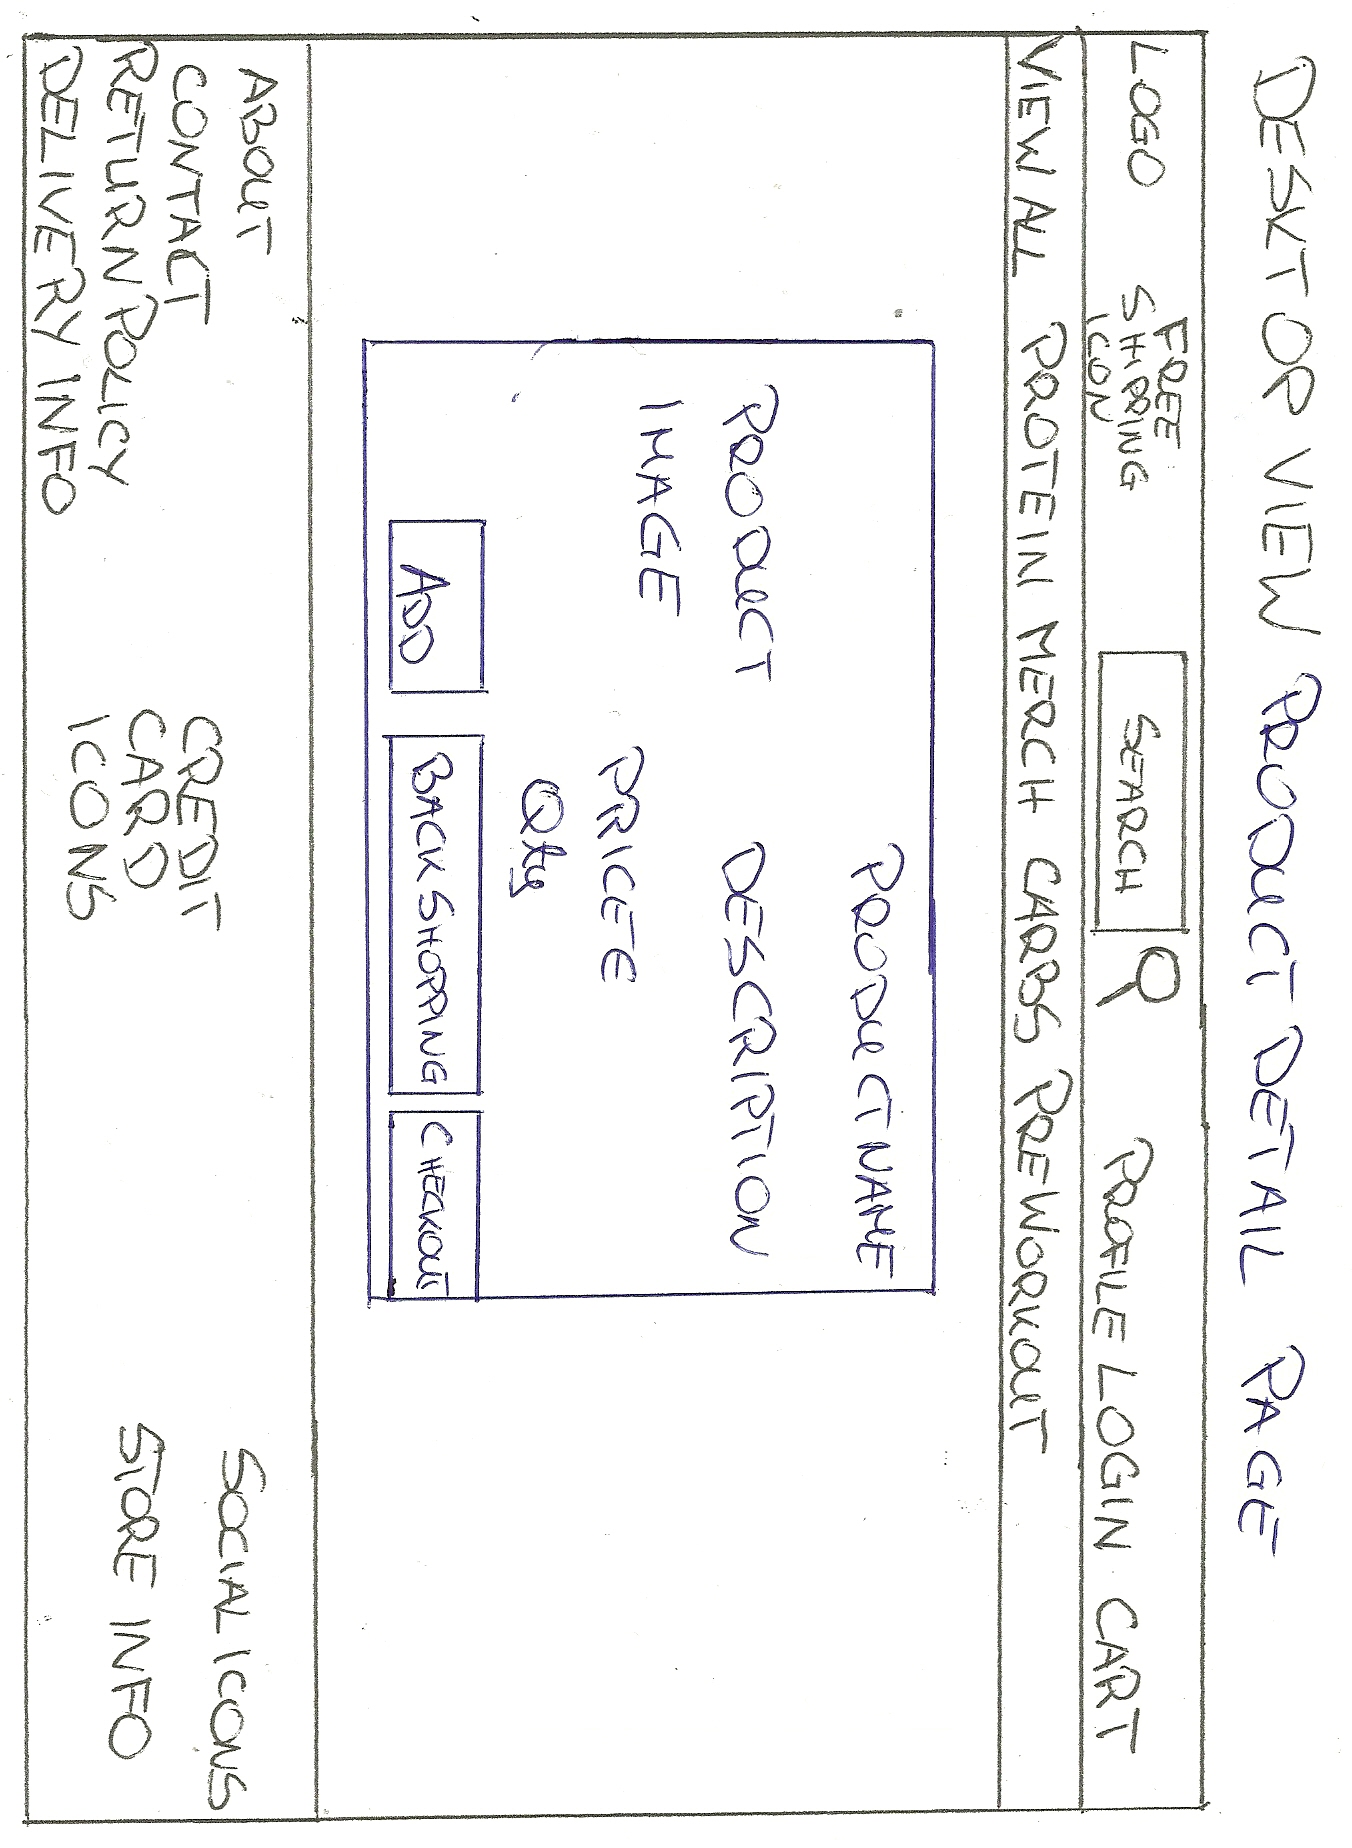 DESKTOP VIEW PRODUCT DETAIL PAGE
LOGO
FREE
SHIPPING
ICON
SEARCH
PROFILE LOGIN CART
VIEW ALL PROTEIN MERCH CARBS PREWORKOUT
PRODUCT NAME
PRODUCT
IMAGE
DESCRIPTION
PRICETE
Qty
ADD
BACK SHOPPING
CHECKOUT
ABOUT
CONTACT
RETURN POLICY
DELIVERY INFO
CREDIT
CARD
ICONS
SOCIAL ICONS
STORE INFO